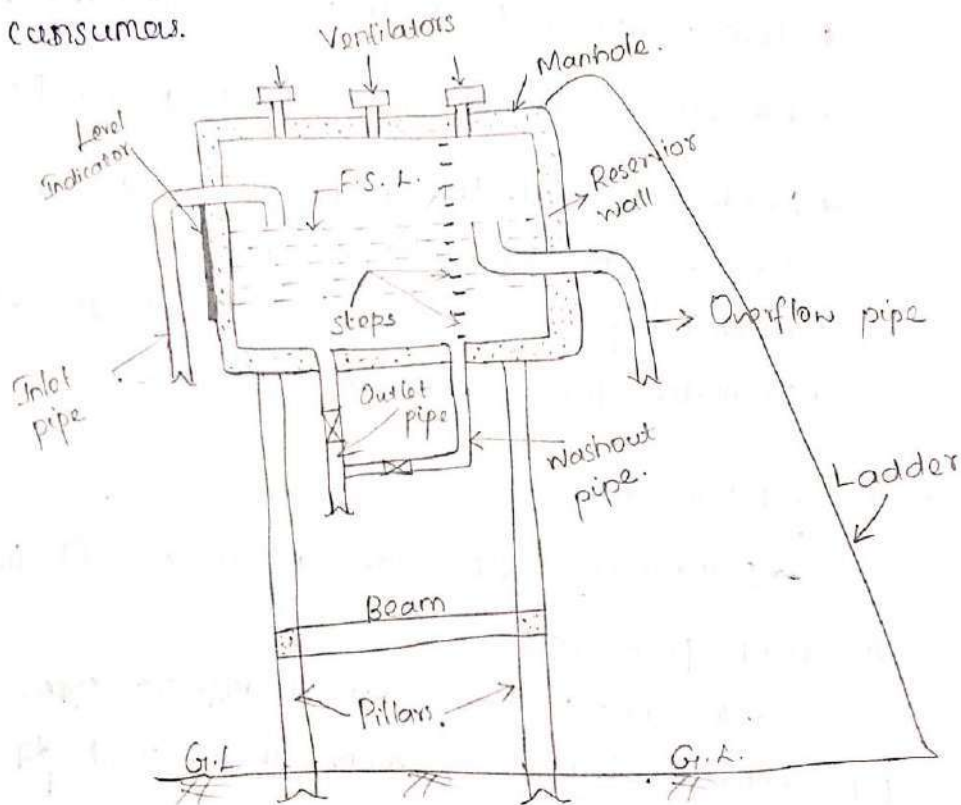 consumers.
Ventilators
Manhole.
Level
Indicator
F.S.L.
Reservior
wall
steps
Overflow pipe
Inlet
pipe
Outlet
pipe
Washout
pipe.
Ladder
Beam
Pillars.
G.L
G.L.